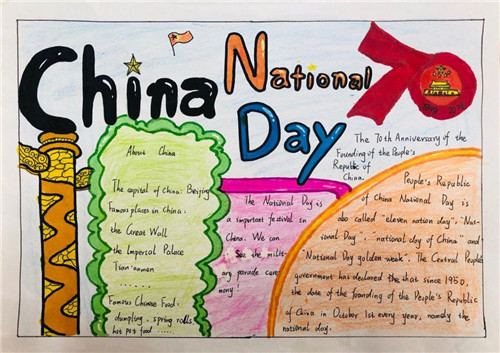 China
National
Day
70
1949 2019
The 70th Anniversary of the
Founding of the People's
Republic of
China.
About China
The capital of china: Beijing
Famous places in China:
the Great Wall
the Imperial Palace
Tian'anmen
......
Famous Chinese Food:
dumpling. spring rolls,
hot pot food .....
The National Day is
a important festival in
China. We can
See the milit-
ary parade cere-
mony!
People's Republic
of China National Day is
also called "eleven nation day", "Nat-
ional Day", national day of China and
"National Day golden week". The Central People's
government has declared the that since 1950,
the date of the founding of the People's Republic
of China in October 1st every year, namely the
national day.